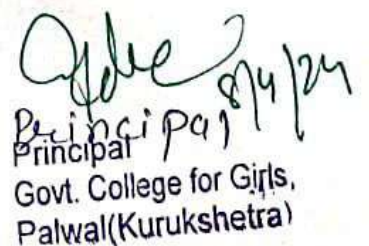 8/4/24
Principal
Principal
Govt. College for Girls,
Palwal(Kurukshetra)